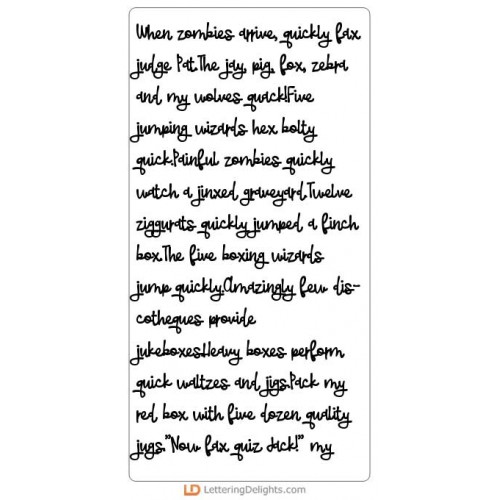 When zombies arrive, quickly fax
judge Pat.The jay, pig, fox, zebra
and my wolves quack!Five
jumping wizards hex bolty
quick.Painful zombies quickly
watch a jinxed graveyard.Twelve
ziggurats quickly jumped a finch
box.The five boxing wizards
jump quickly.Amazingly few dis-
cotheques provide
jukeboxes.Heavy boxes perform
quick waltzes and jigs.Pack my
red box with five dozen quality
jugs."Now fax quiz Jack!" my
LD LetteringDelights.com